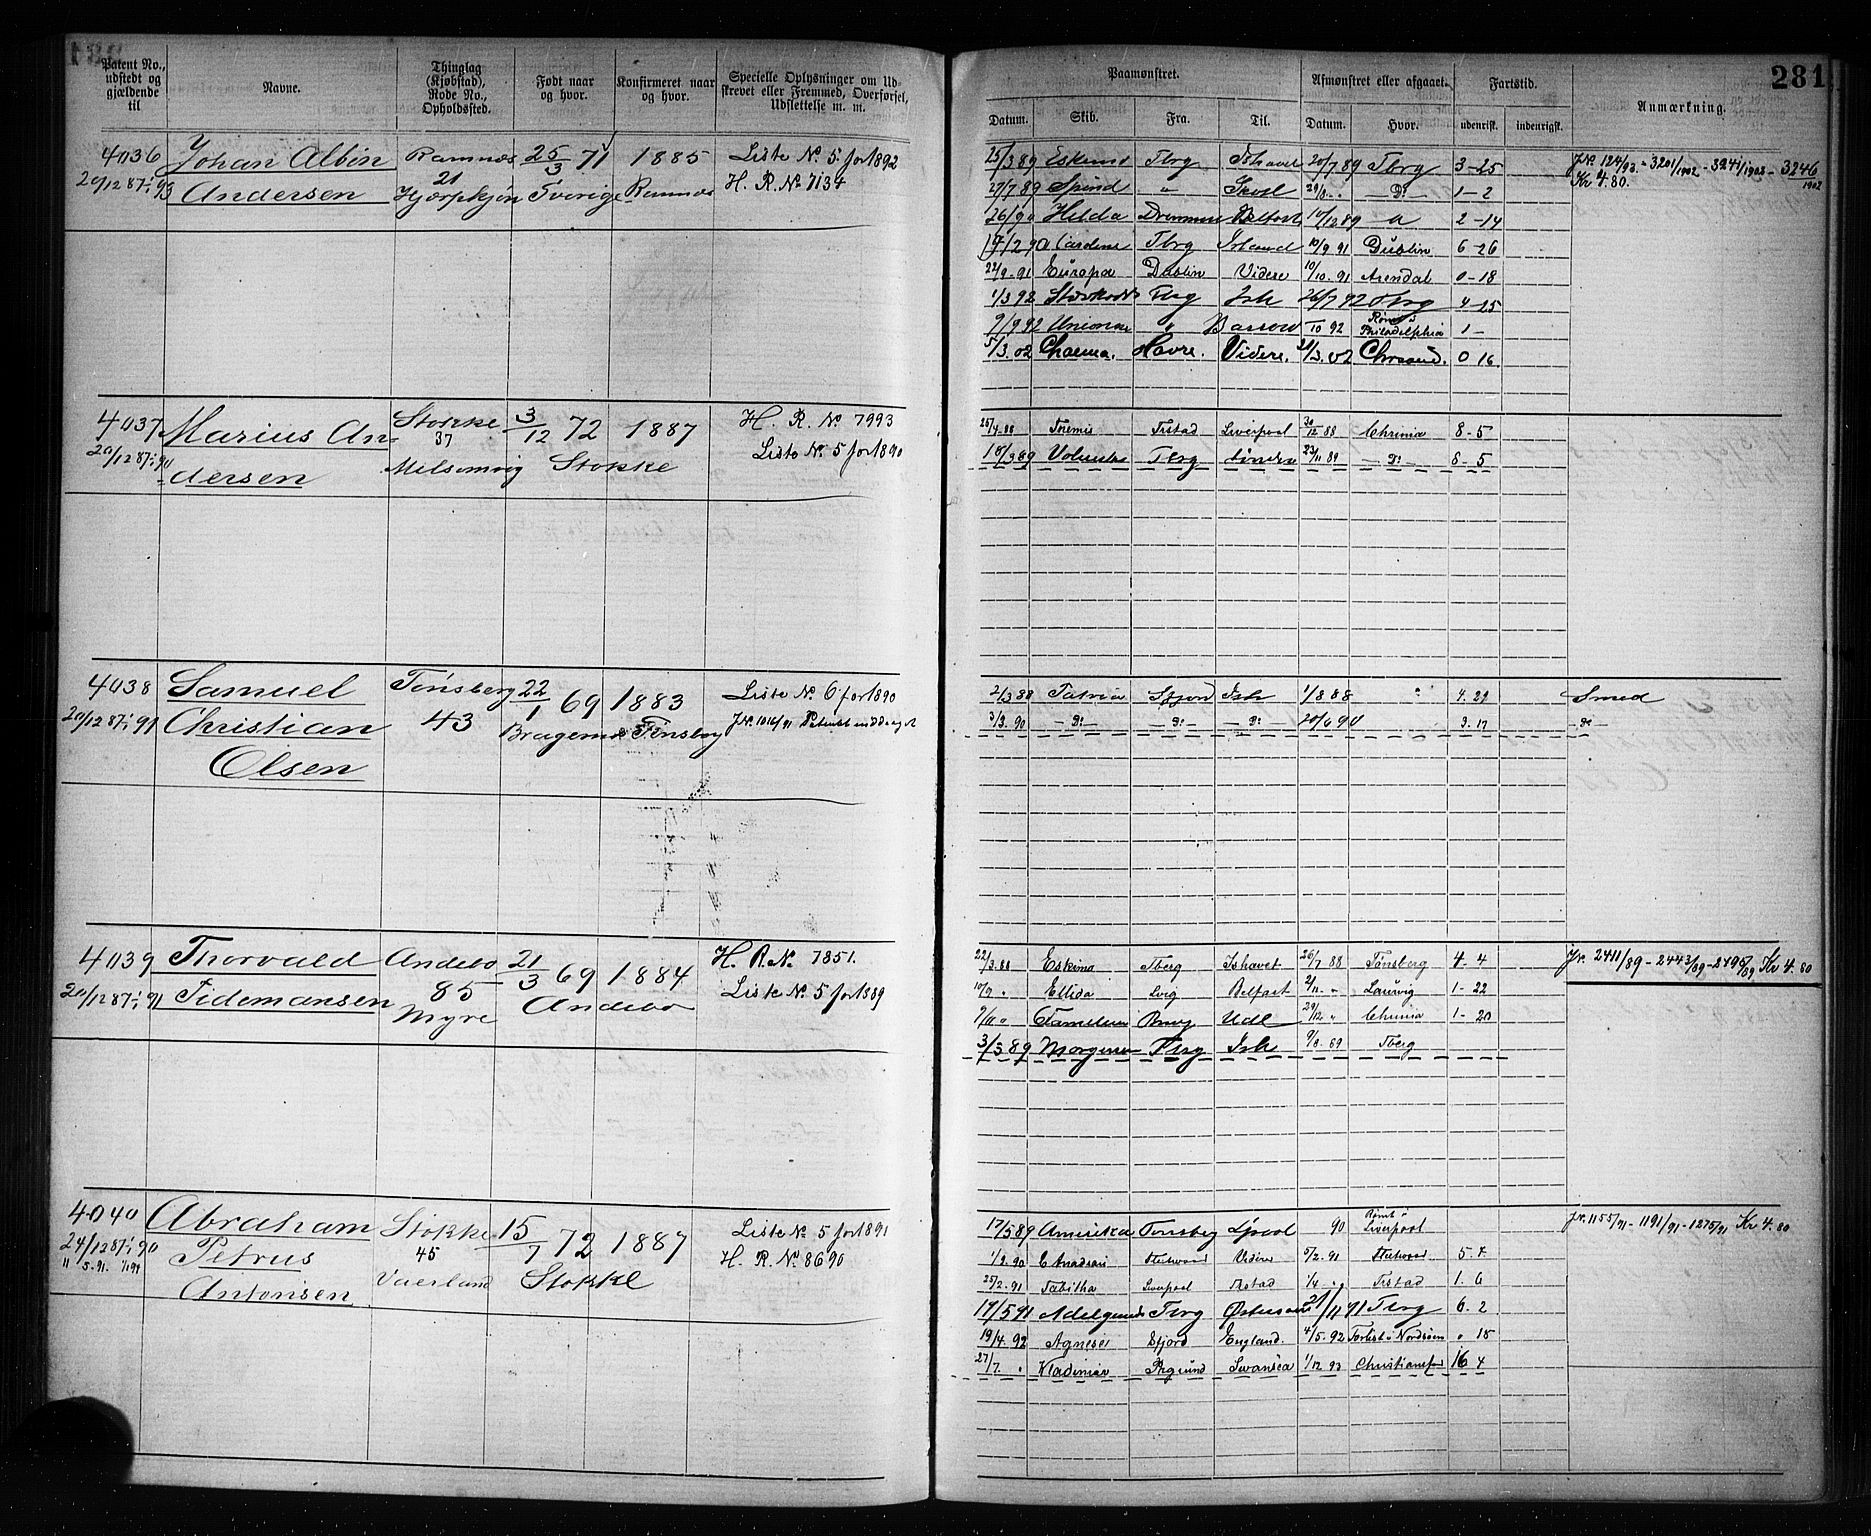 281
Patent No., udstedt og gjældende til
Navne.
Thinglag (Kjøbstad), Rode No., Opholdssted.
Født naar og hvor.
Konfirmeret naar og hvor.
Specielle Oplysninger om Udskrevet eller Fremmed, Overførsel, Udslettelse m. m.
Paamønstret.
Afmønstret eller afgaaet.
Fartstid.
Anmærkning.
Datum. Skib. Fra. Til. Datum. Hvor. udenrigsk. indenrigsk.
4036 Johan Albin Ramnæs 25/3 71 1885 Liste No 5 for 1892
20/12 87 93 Andersen 21 Sverige Ramnæs H. R. No 7134
25/3 89 Eskimo Tbrg Ishavet 20/7 89 Tbrg 3-25 J.No. 124/93 - 3201/1902 - 3241/1902 - 3246/1902
Kr 4.80.
27/7 89 Spind " 29/8 Do 1-2
Hilda Drammen Belfast 10/12 89 2-14
Tbrg Irland 10/9 91 Dublin 6-26
22/9 91 Europa Dublin Videre 10/10 91 Arendal 0-18
1/3 92 Tbrg Ish 26/7 92 Tbrg 4-25
9/9 92 " Barrow 10 92 Rømt i Philadelphia 1-
5/3 02 Havre. Videre. 21/3 02 0 16
4037 Marius An- Stokke 3/12 72 1887 H. R. No 7993
20/12 87 90 dersen 37 Stokke Liste No 5 for 1890
Melsomvig
25/4 88 Themis Frstad Liverpool 30/12 88 Chrania 8-5
Tbrg 23/11 89 Do 8-5
4038 Samuel Tønsberg 22/1 69 1883 Liste No 6 for 1890
20/12 87 91 Christian 43 Bragernæs Tønsberg J.No. 1016/91
Olsen
2/3 88 Patria Sfjord Ish 1/8 88 " 4. 29 Smed
3/3 90 Do Do Do 20/6 90 3. 17 Do
4039 Thorvald Andebo 21/3 69 1884 H. R. No 7351.
20/12 87 91 Tidemansen 85 Andebo Liste No 5 for 1889
Myre
22/3 88 Eskimo Tberg Ishavet 26/7 88 Tønsberg 4. 4 J.No. 2411/89 - 2443/89 - 2495/89 Kr 4.80
10/9 " Ellida Svig Belfast 2/11 " Laurvig 1- 22
7/11 " Udl 29/12 " Chrania 1- 20
3/3 89 Morgenen Tbrg Ish 9/8 89 Tberg
4040 Abraham Stokke 15/7 72 1887 Liste No 5 for 1891
24/12 87 90 Petrus 45 Stokke H. R. No 8690
11/5 91. Antonsen Vaerland
17/5 89 Amerika Tønsberg Lpool 90 Rømt i Liverpool J.No. 1155/91 - 1191/91 - 1275/91 Kr 4.80
1/9 90 Videre 5/2 91 5. 4
25/2 91 Tabitha Liverpool Frstad 1/4 " Frstad 1. 6
17/5 91 Adelgunde Tbrg Østersøen 21/11 91 Tbrg 6. 2
19/4 92 Agnese Sfjord England. 4/5 92 Forlist i Nordsøen " 15
27/7 " Vladimir Swansea 1/12 93 16 4